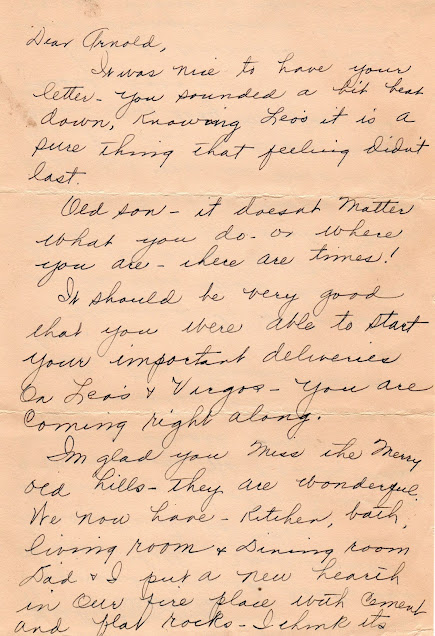 Dear Arnold,
It was nice to have your
letter - you sounded a bit beat
down, Knowing Leo's it is a
sure thing that feeling didn't
last.
Old son - it doesnt Matter
what you do - or where
you are - there are times!
It should be very good
that you were able to start
your important deliveries
On Leo's & Virgos - You are
Coming right along.
Im glad you Miss the Merry
old hills - they are wonderful.
We now have - Kitchen, bath,
living room & Dining room
Dad & I put a new hearth
in Our fire place with Cement
and flat rocks - I think its